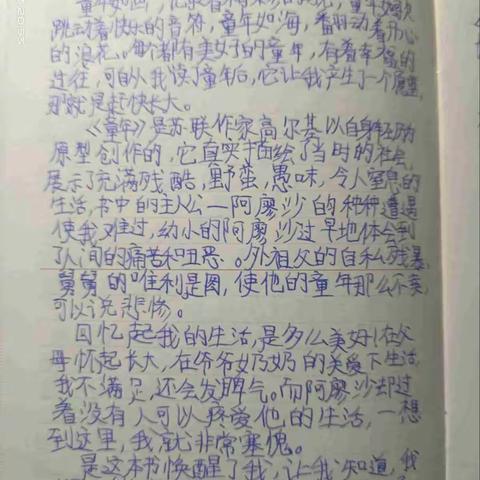 童年如画,
跳动着快乐的音符,童年如海,翻动着开心
的浪花。每个都有美好的童年,有着幸福的
过往,可自从我读了童年后,它让我产生了一个愿望,
那就是赶快长大。
《童年》是苏联作家高尔基以自身经历为
原型创作的,它真实描绘了当时的社会,
展示了充满残酷,野蛮,愚味,令人窒息的
生活,书中的主人公一阿廖沙的种种遭遇
使我难过,幼小的阿廖沙过早地体会到
了人间的痛苦和丑恶。外祖父的自私残暴,
舅舅的唯利是图,使他的童年那么不美,
可以说悲惨。
回忆起我的生活,是多么美好!在父
母怀起长大,在爷爷奶奶的关爱下生活,
我不满足,还会发脾气。而阿廖沙却过
着没有人可以疼爱他的生活,一想
到这里,我就非常寒愧。
是这本书唤醒了我,让我知道,我